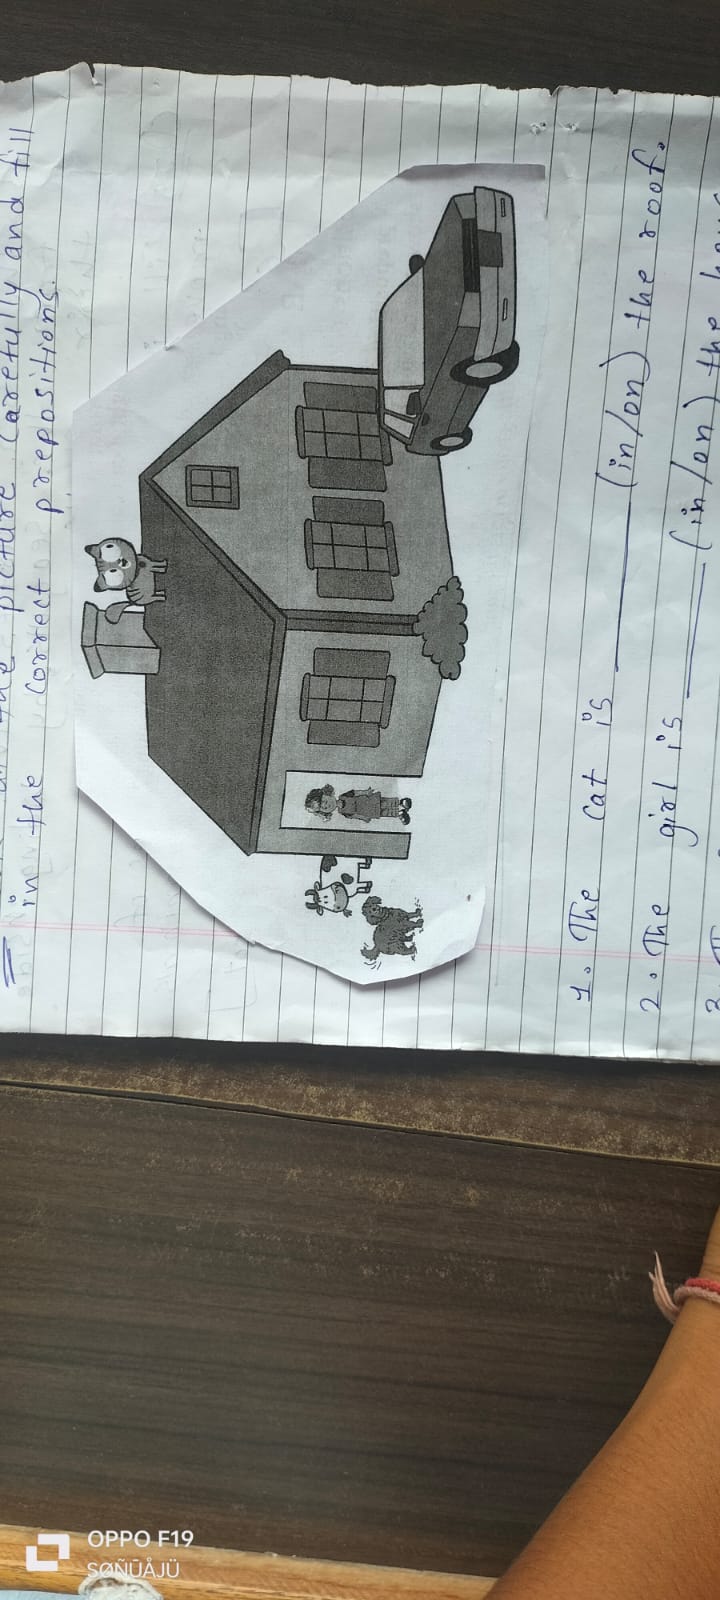 the picture carefully and fill
in the correct prepositions.
1. The cat is ______ (in/on) the roof.
2. The girl is ______ (in/on) the
3.
OPPO F19
SØÑŪÅJÜ